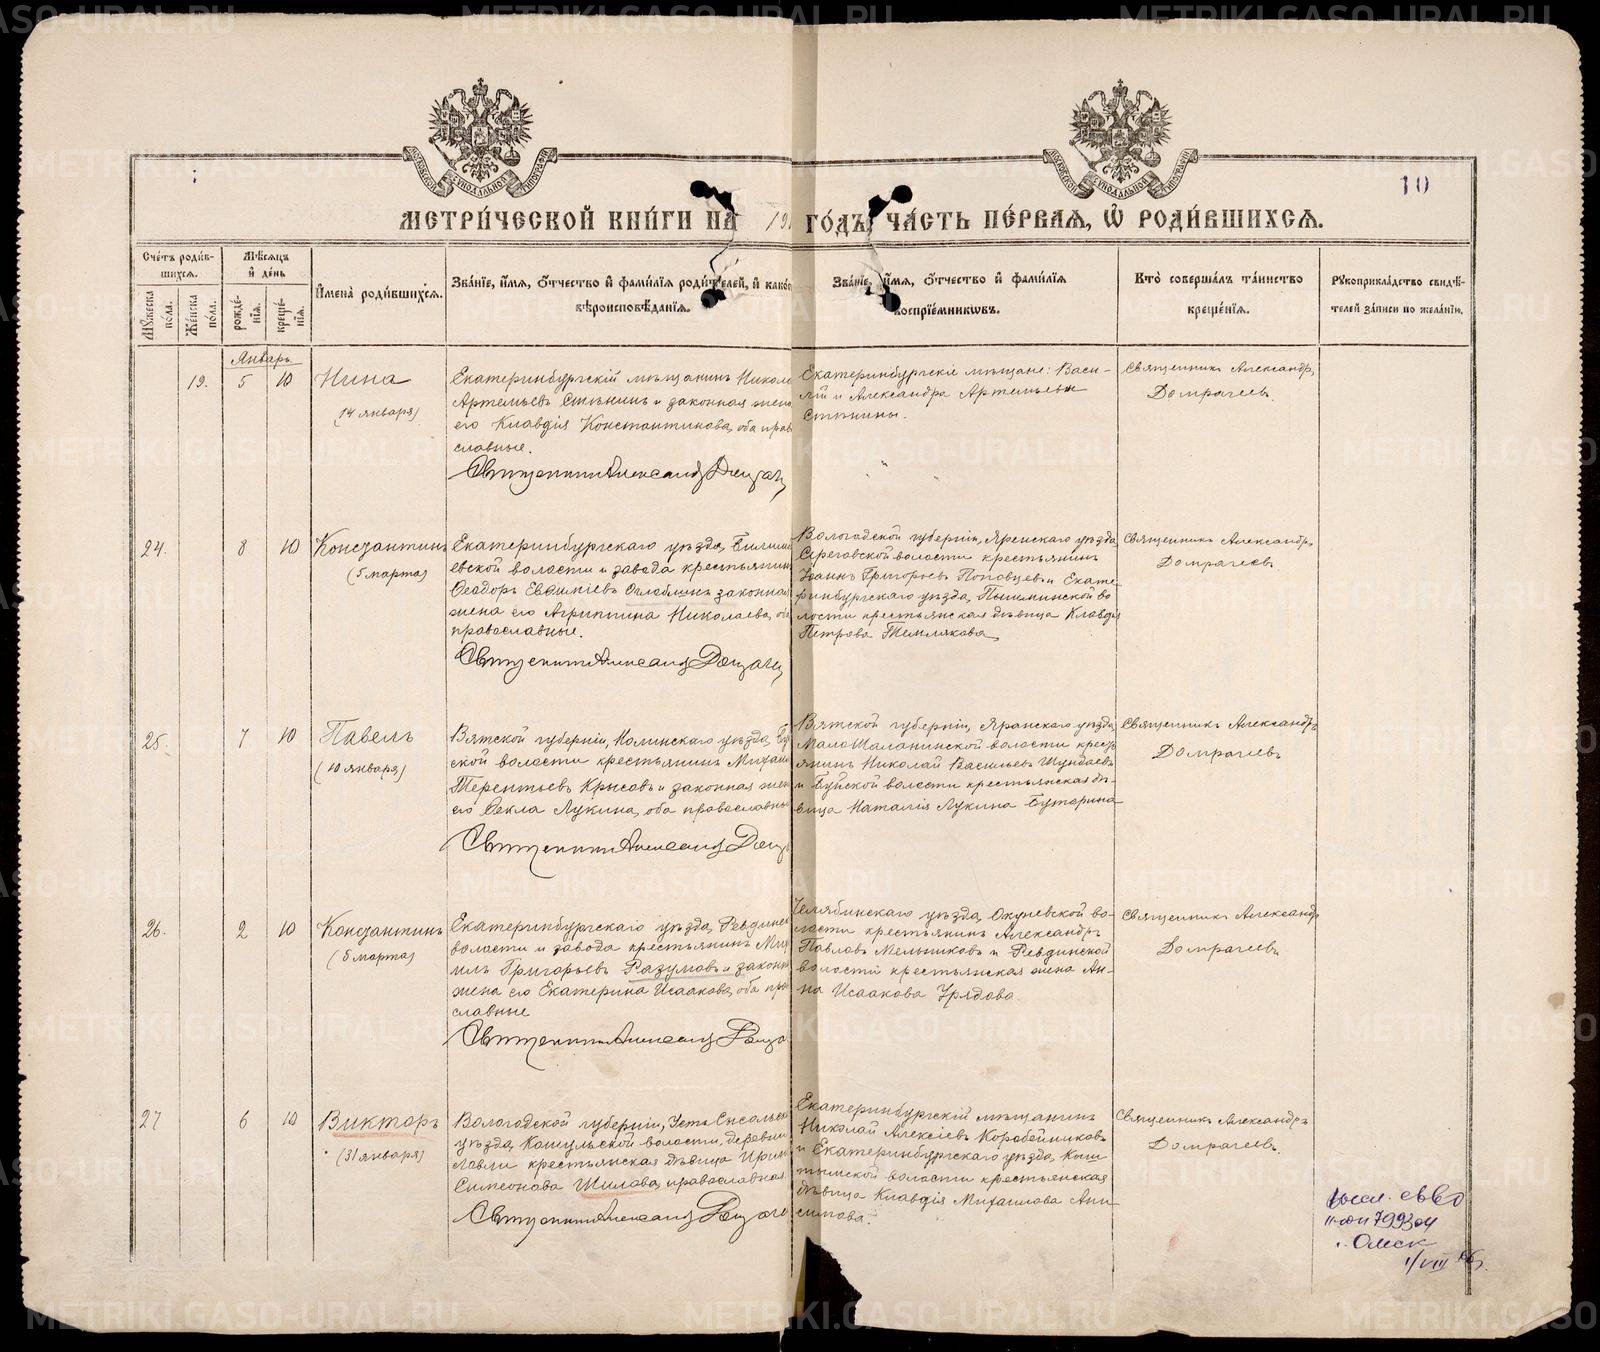 МОСКОВСКОЙ СУНОДАЛЬНОЙ ТИПОГРАФІИ
МОСКОВСКОЙ СУНОДАЛЬНОЙ ТИПОГРАФІИ
10
МЕТРИ́ЧЕСКОЙ КНИ́ГИ НА 191 ГО́ДЪ, ЧА́СТЬ ПЕ́РВАЯ, Ѿ РОДИ́ВШИХСЯ.
Сче́тъ роди́вшихся.
Му́жеска по́ла.
Же́нска по́ла.
Мѣ́сяцъ и҆ де́нь
рожде́нія.
креще́нія.
И҆мена̀ роди́вшихся.
Зва́ніе, и҆́мя, ѻ҆́тчество и҆ фами́лія роди́телей, и҆ како́г
вѣроисповѣ́данія.
Зва́ніе, и҆́мя, ѻ҆́тчество и҆ фами́лія
воспріе́мниковъ.
Кто̀ соверша́лъ та́инство
креще́нія.
Рꙋкоприкла́дство свидѣ́-
телей за́писи по жела́нію.
Январь
19. 5 10 Нина
(14 января)
Екатеринбургскій мѣщанинъ Никола
Артемьевъ Стенинъ и законная жена
его Клавдія Константинова, оба прав
славные.
Священникъ Александръ Домрач
Екатеринбургскіе мѣщане: Васи-
лій и Александра Артемьевы
Стенины.
Священникъ Александръ
Домрачевъ.
24. 8 10 Константинъ
(5 марта)
Екатеринбургскаго уѣзда, Билим
евской волости и завода крестьянин
Ѳеодоръ Евѳиміевъ Оглоблинъ законная
жена его Агриппина Николаева, об
православные.
Священникъ Александръ Домрачев
Вологодской губерніи, Яренскаго уѣзда,
Сереговской волости крестьянинъ
Іоаннъ Григорьевъ Поповцевъ и Екате-
ринбургскаго уѣзда, Пышминской во-
лости крестьянская дѣвица Клавдія
Петрова Темлякова
Священникъ Александръ
Домрачевъ
25. 7 10 Павелъ
(10 января)
Вятской губерніи, Нолинскаго уѣзда, Буй
ской волости крестьянинъ Михаи
Терентьевъ Крысовъ и законная жен
его Ѳекла Лукина, оба православны
Священникъ Александръ Дом
Вятской губерніи, Яранскаго уѣзда,
МалоШалайинской волости кресть
янинъ Николай Васильевъ Шундаевъ
и Буйской волости крестьянская дѣ-
вица Наталія Лукина Бутерина
Священникъ Александръ
Домрачевъ
26. 2 10 Константинъ
(5 марта)
Екатеринбургскаго уѣзда, Ревдинск
волости и завода крестьянинъ Миха
илъ Григорьевъ Разумовъ и законн
жена его Екатерина Исаакова, оба пра
славные
Священникъ Александръ Домра
Челябинскаго уѣзда, Окуневской во-
лости крестьянинъ Александръ
Павловъ Мельниковъ и Ревдинской
волости крестьянская жена Ан-
на Исаакова Урядова.
Священникъ Александръ
Домрачевъ
27 6 10 Викторъ
(31 января)
Вологодской губерніи, Усть Сысольск
уѣзда, Койгульской волости, деревни
крестьянская дѣвица Ирин
Симеонова Шилова, православная
Священникъ Александръ Домрачев
Екатеринбургскій мѣщанинъ
Николай Алексіевъ Коробейниковъ
и Екатеринбургскаго уѣзда, Кыш
тымской волости крестьянская
дѣвица Клавдія Михаилова Ани-
симова.
Священникъ Александръ
Домрачевъ.
799304
г. Омск
1/VIII
METRIKI.GASO-URAL.RU